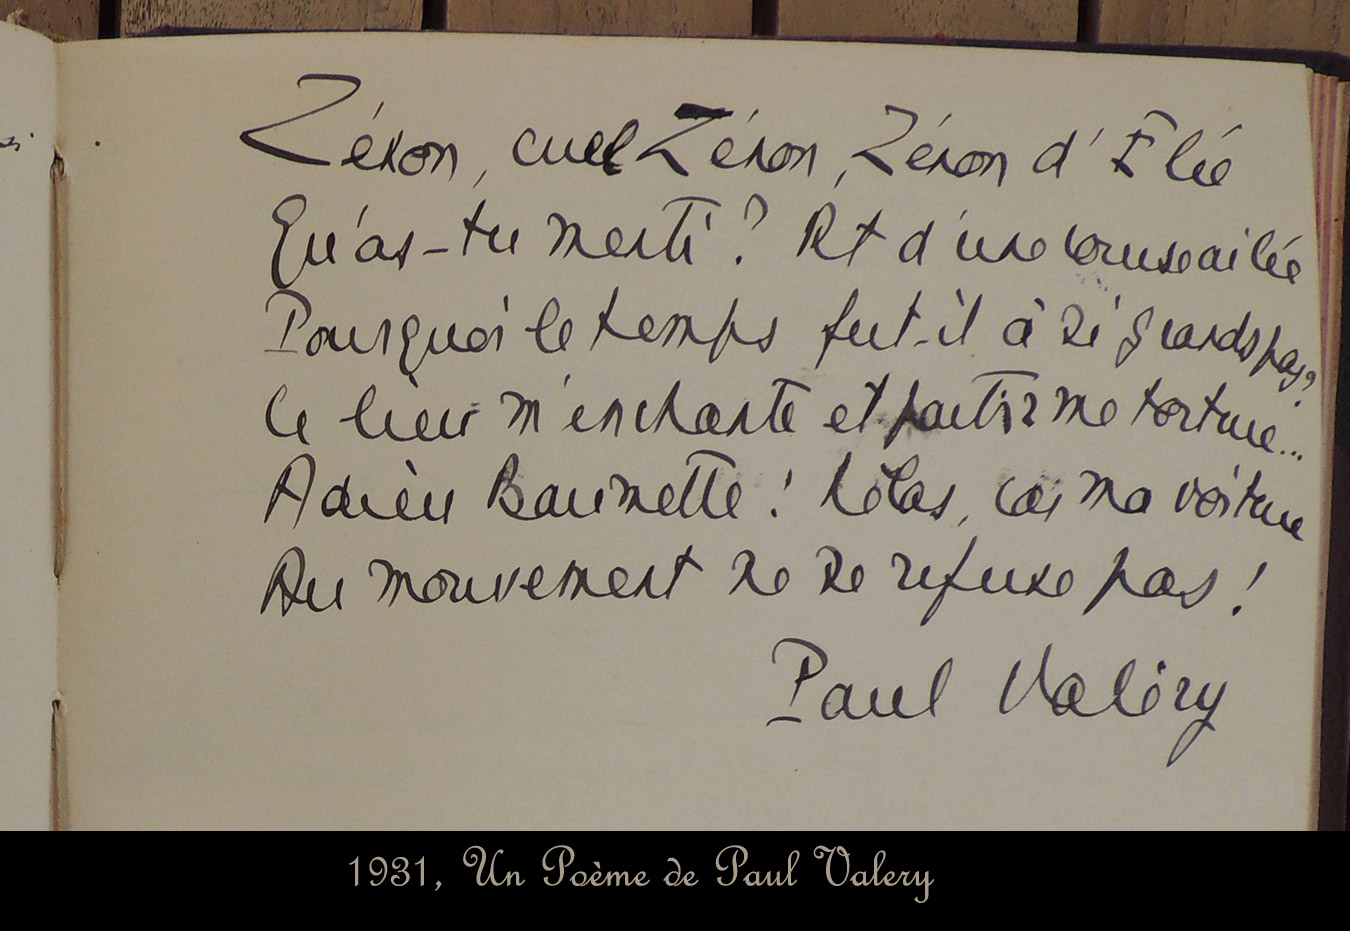 Zénon, cruel Zénon, Zénon d'Élée
Qu'as-tu menti ? Et d'une course ailée
Pourquoi le temps fuit-il à si grands pas ?
Ce lieu m'enchante et partir me torture...
Adieu Baumette ! hélas, car ma voiture
Au mouvement ne se refuse pas !
Paul Valéry
1931, Un Poème de Paul Valery